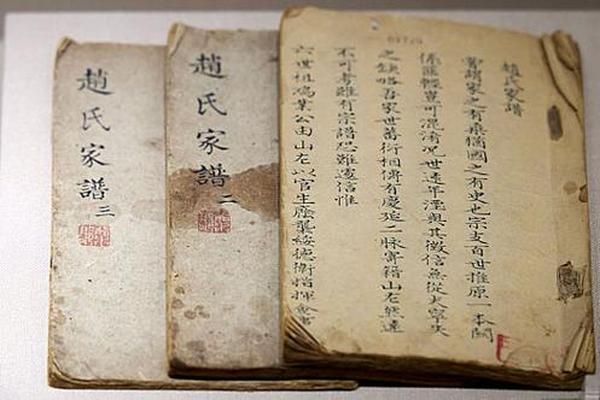 趙氏家譜
嘗謂家之有乘猶國之有史也宗支百世推原一本關
係匪輕豈可混淆况世遠年湮與其徵信無從寧失
之缺略吾家世蕃衍相傳有慶延二脈寄籍山左然遠
不可考雖有宗譜恐難憑信惟
六世祖鴻業公由山左以官生廕襲綏德衛指揮僉事
趙氏家譜二
趙氏家譜三